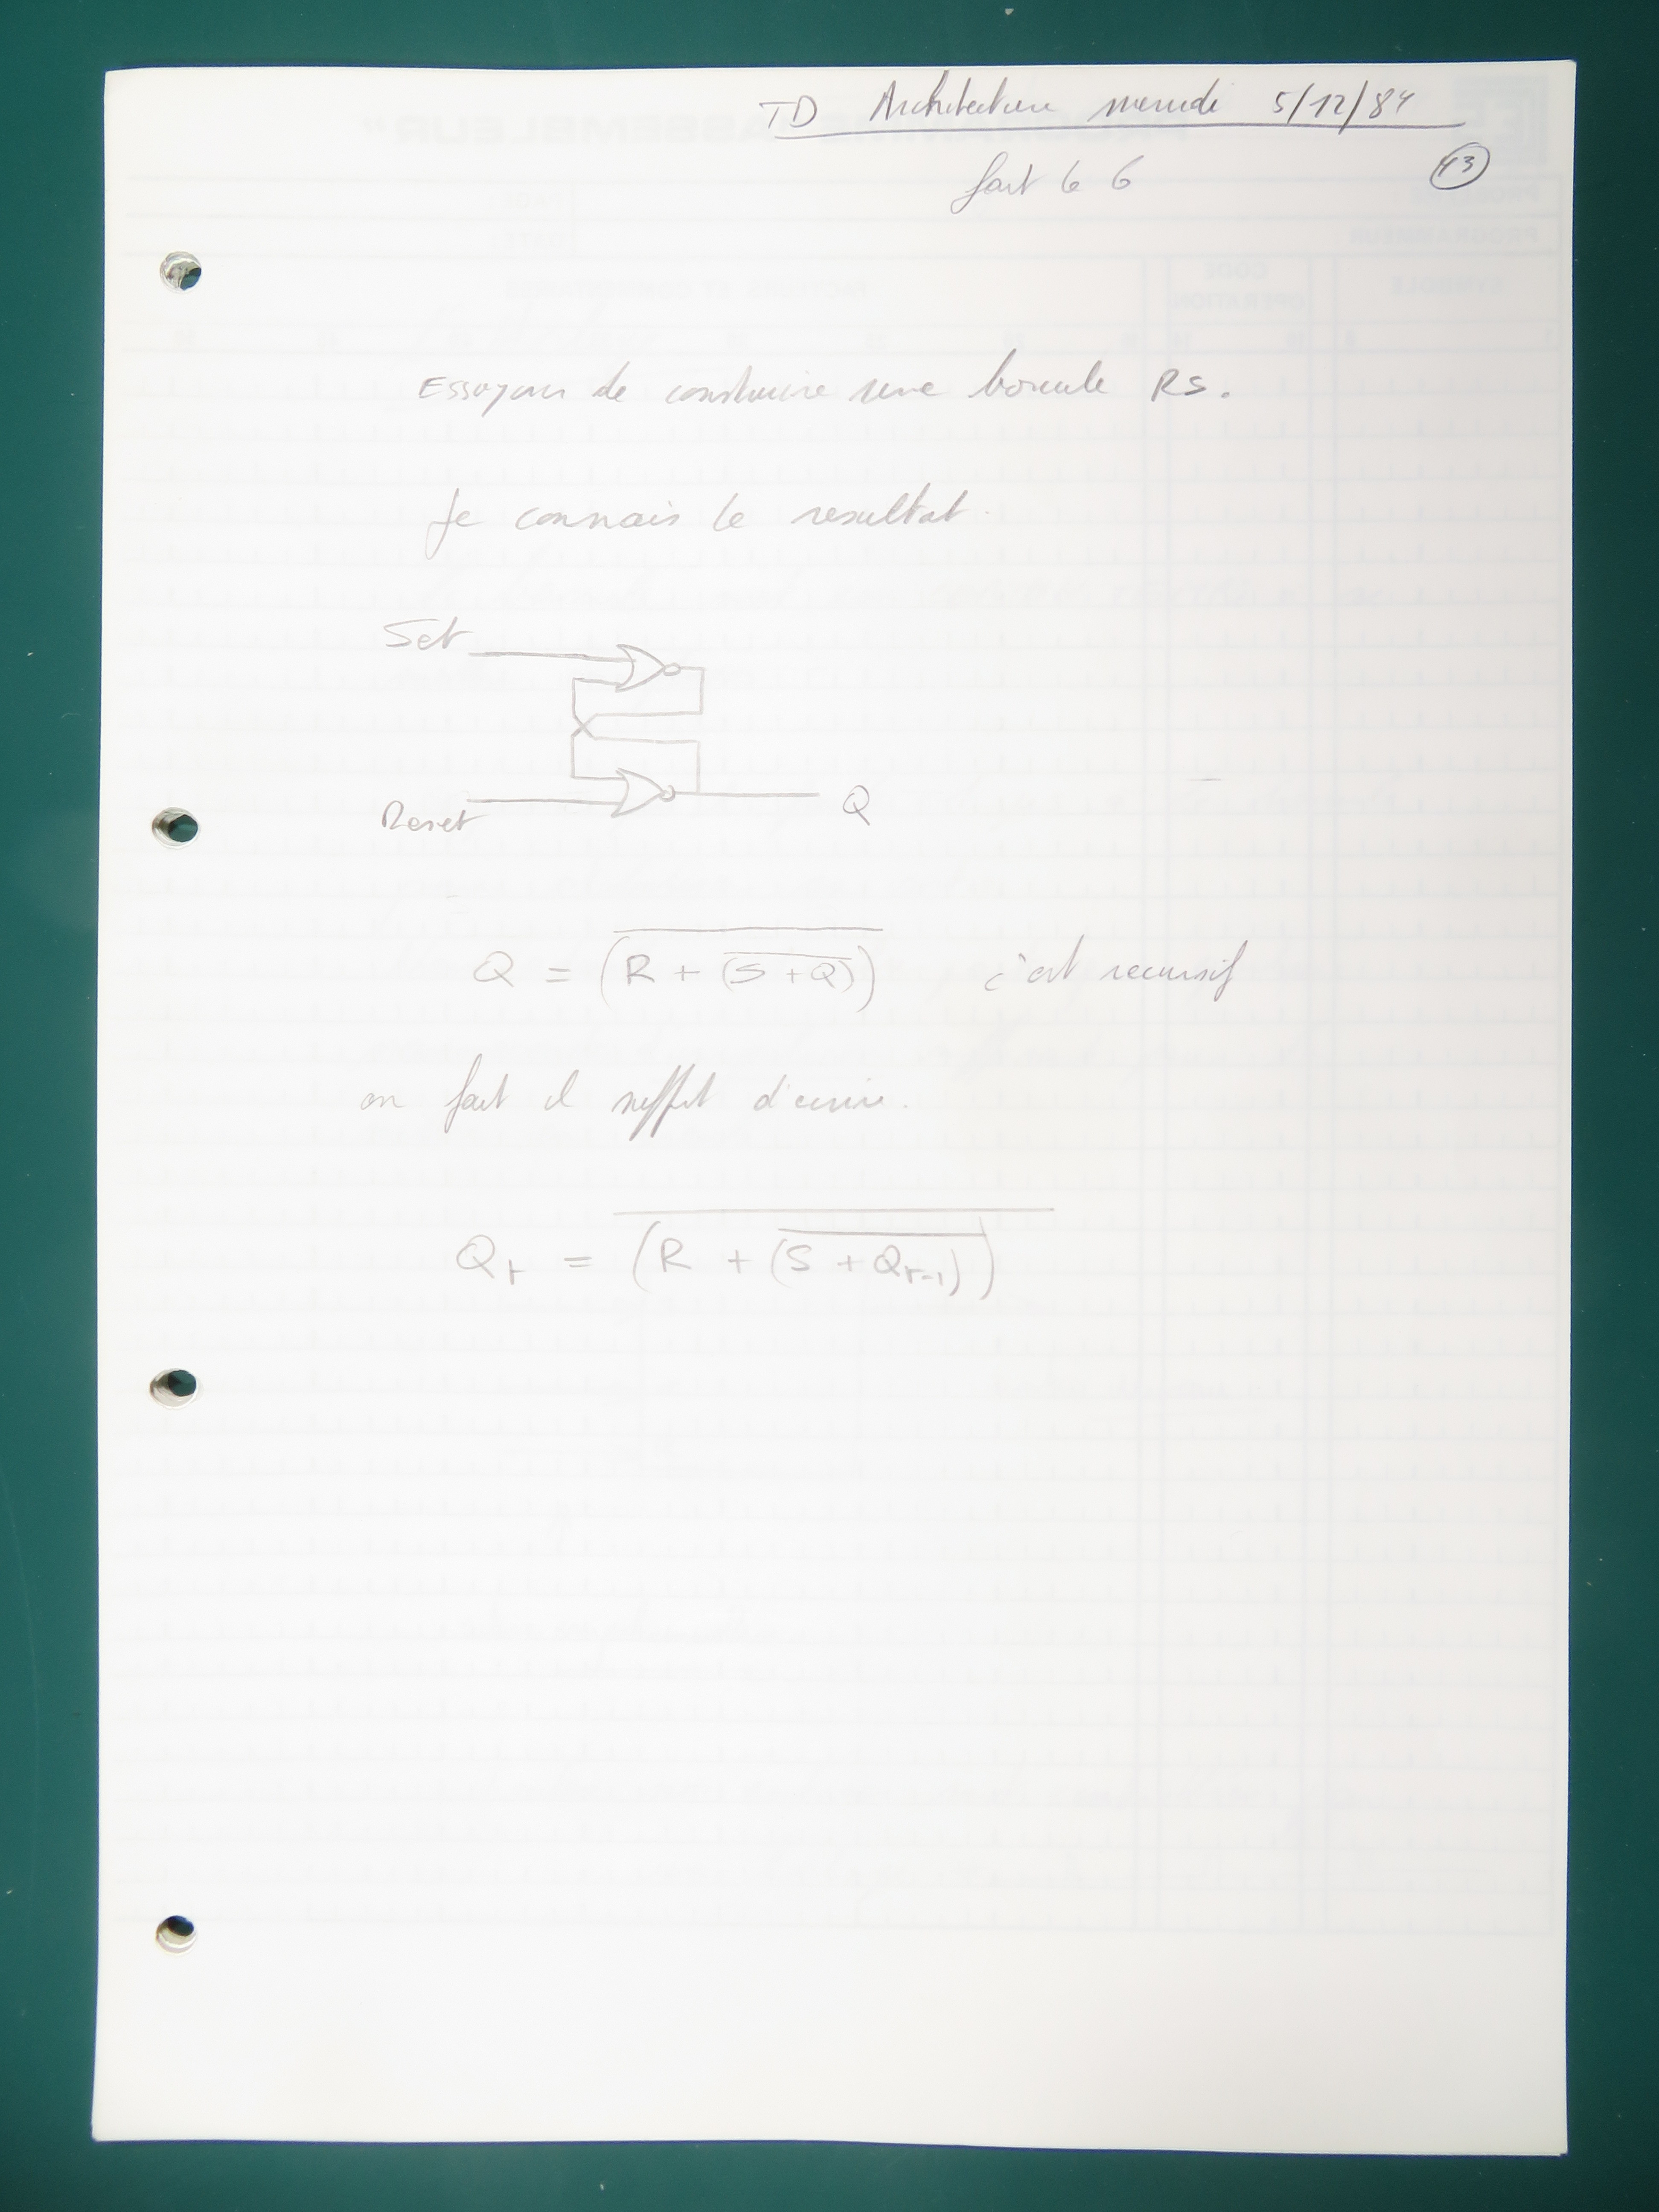 TD Architecture mercredi 5/12/84
fait le 6
43
Essayons de construire une boucle RS.
Je connais le resultat.
Set
Reset
Q
Q = \overline{(R + \overline{(S + Q)})} c'est recursif
en fait il suffit d'ecrire.
Q_t = \overline{(R + \overline{(S + Q_{t-1})})}